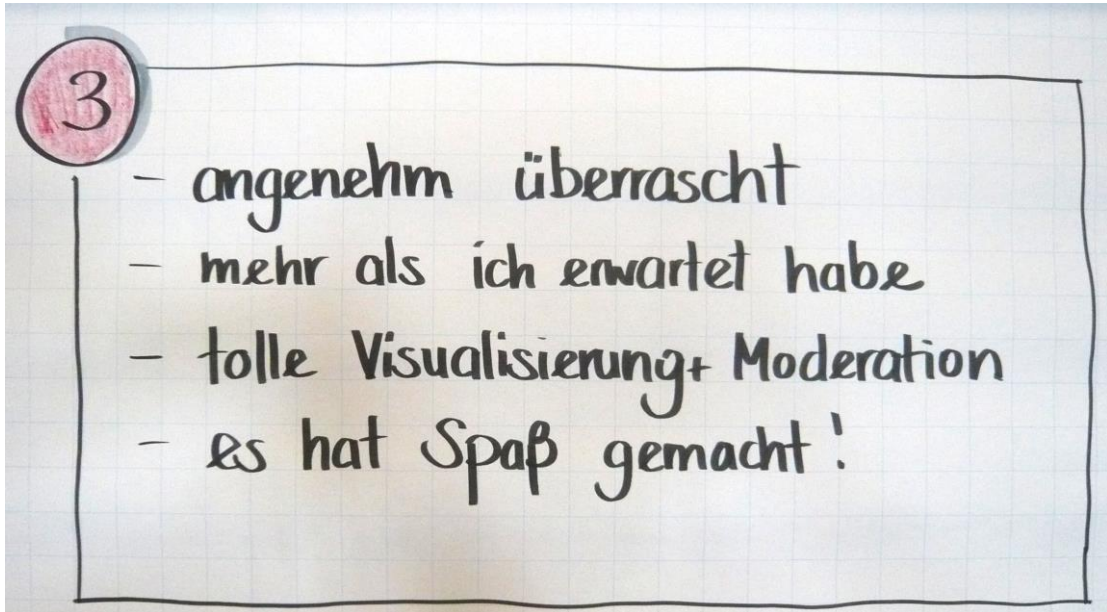 3
- angenehm überrascht
- mehr als ich erwartet habe
- tolle Visualisierung + Moderation
- es hat Spaß gemacht!